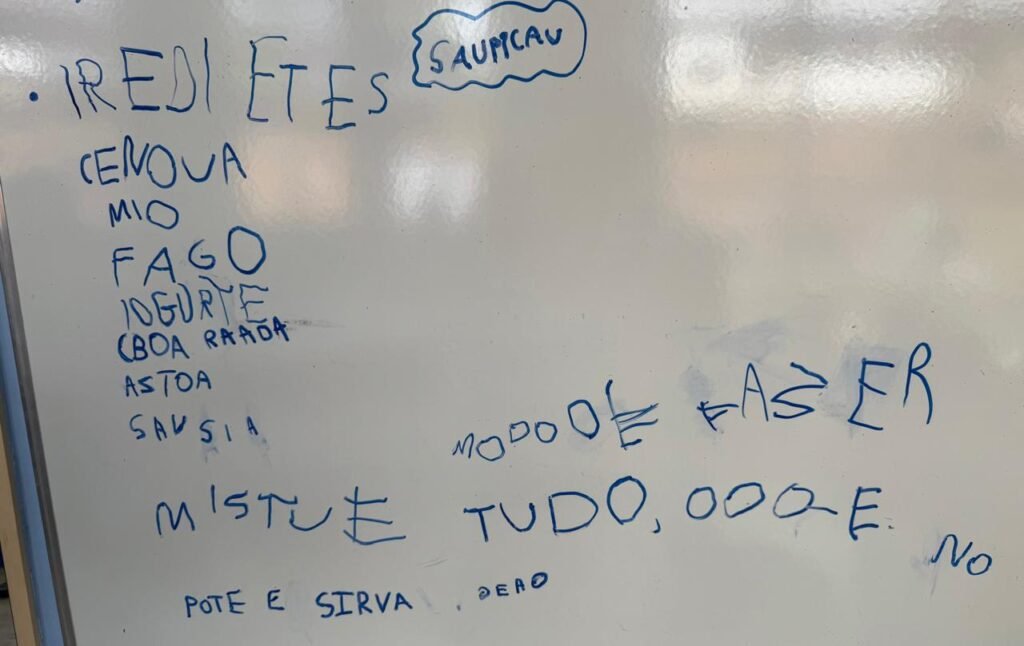 SAUPICAU
• IREDIETES
CENOUA
MIO
FAGO
IOGURTE
CBOA RAADA
ASTOA
SAUSIA
MODO DE FASER
MISTUE TUDO, OOO-E. NO
POTE E SIRVA. DEAO